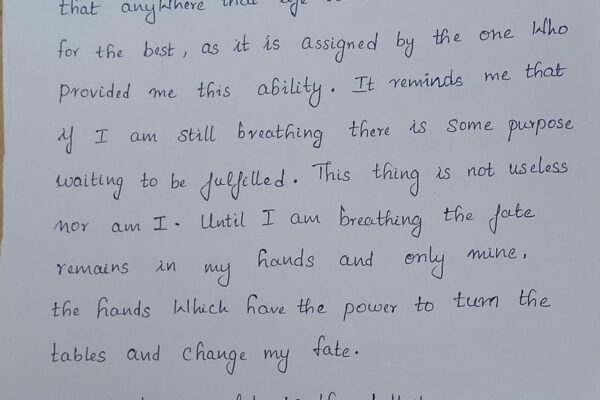 that anywhere that
for the best, as it is assigned by the one who
provided me this ability. It reminds me that
if I am still breathing there is some purpose
waiting to be fulfilled. This thing is not useless
nor am I. Until I am breathing the fate
remains in my hands and only mine,
the hands which have the power to turn the
tables and change my fate.